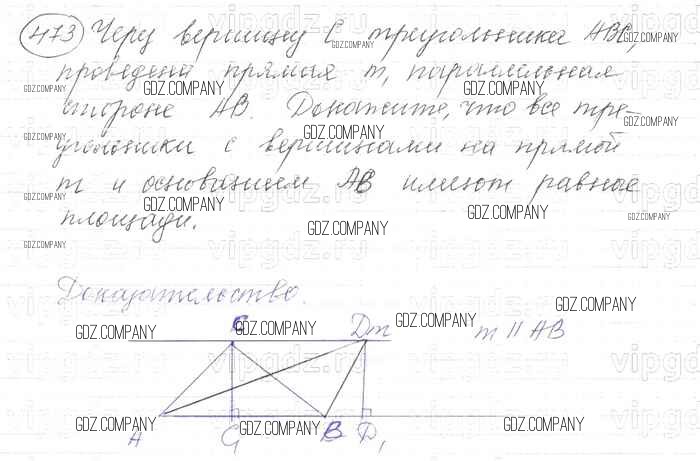 473 Через вершину C треугольника ABC,
проведена прямая m, параллельная
стороне AB. Докажите, что все тре-
угольники с вершинами на прямой
m и основанием AB имеют равные
площади.
Доказательство.
C D m m || AB
A C₁ B D₁
GDZ.COMPANY
vipgdz.ru